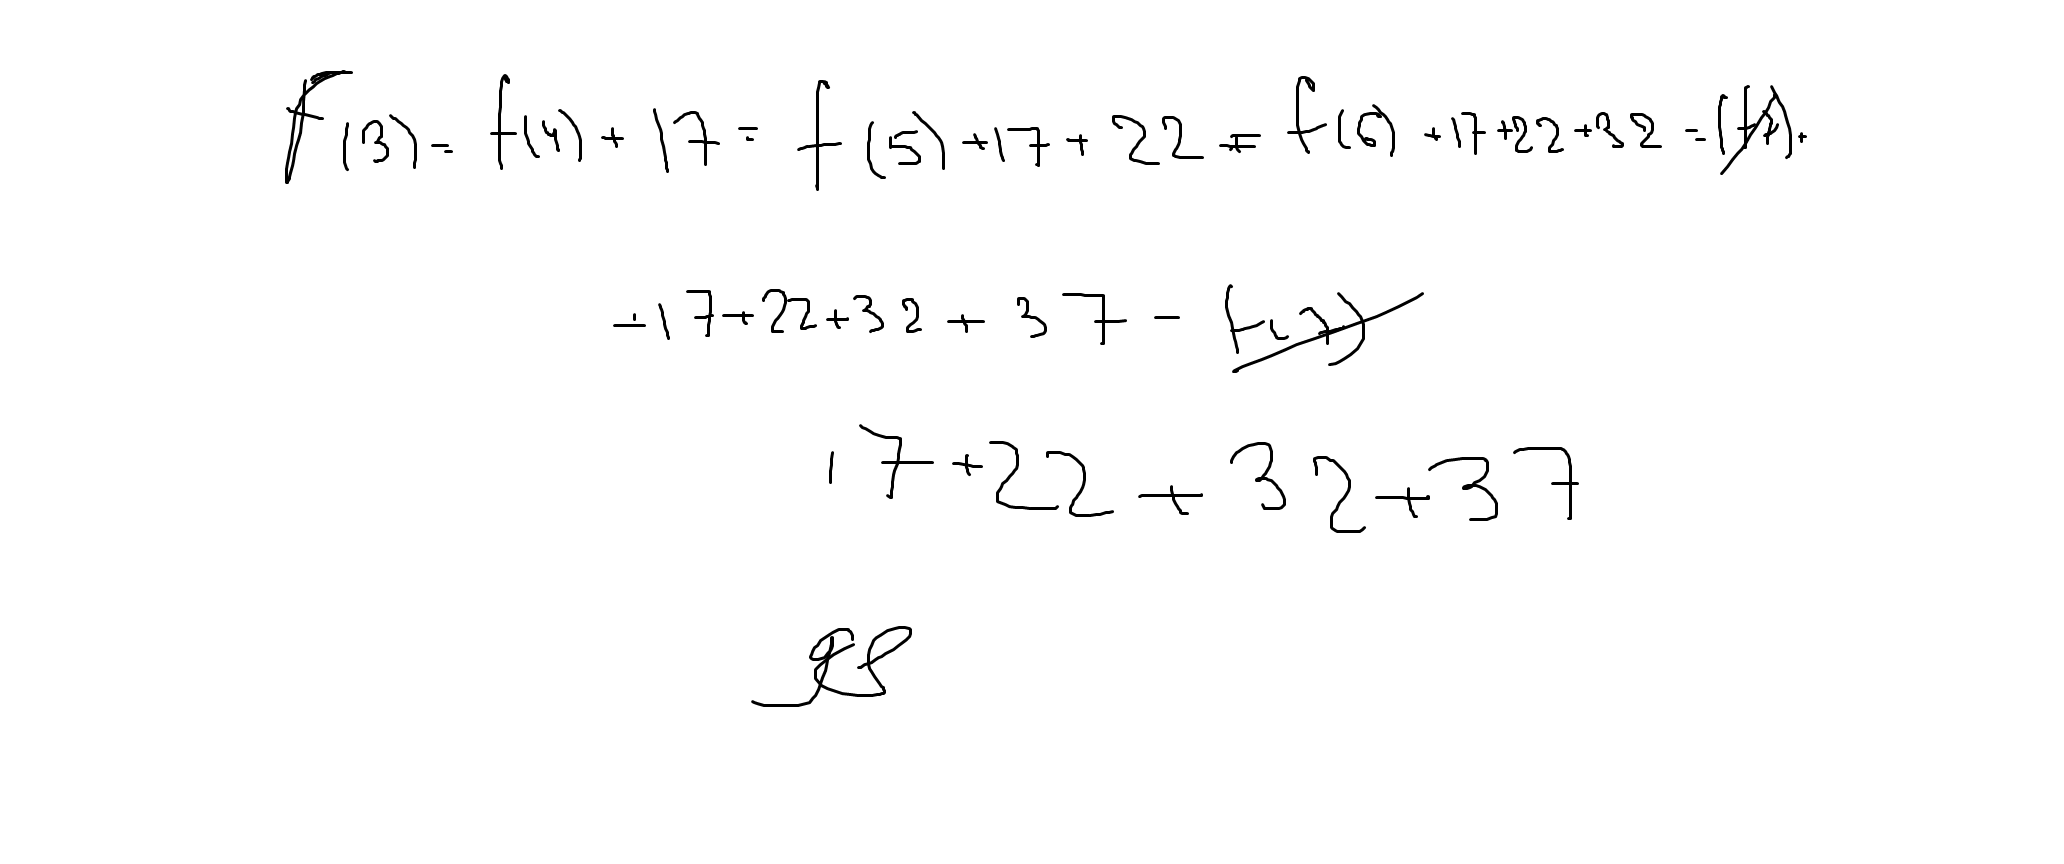 F(3) = f(4) + 17 = f(5) + 17 + 22 = f(6) + 17 + 22 + 32 = (f7) +
+ 17 + 22 + 32 + 37 - f(7)
17 + 22 + 32 + 37